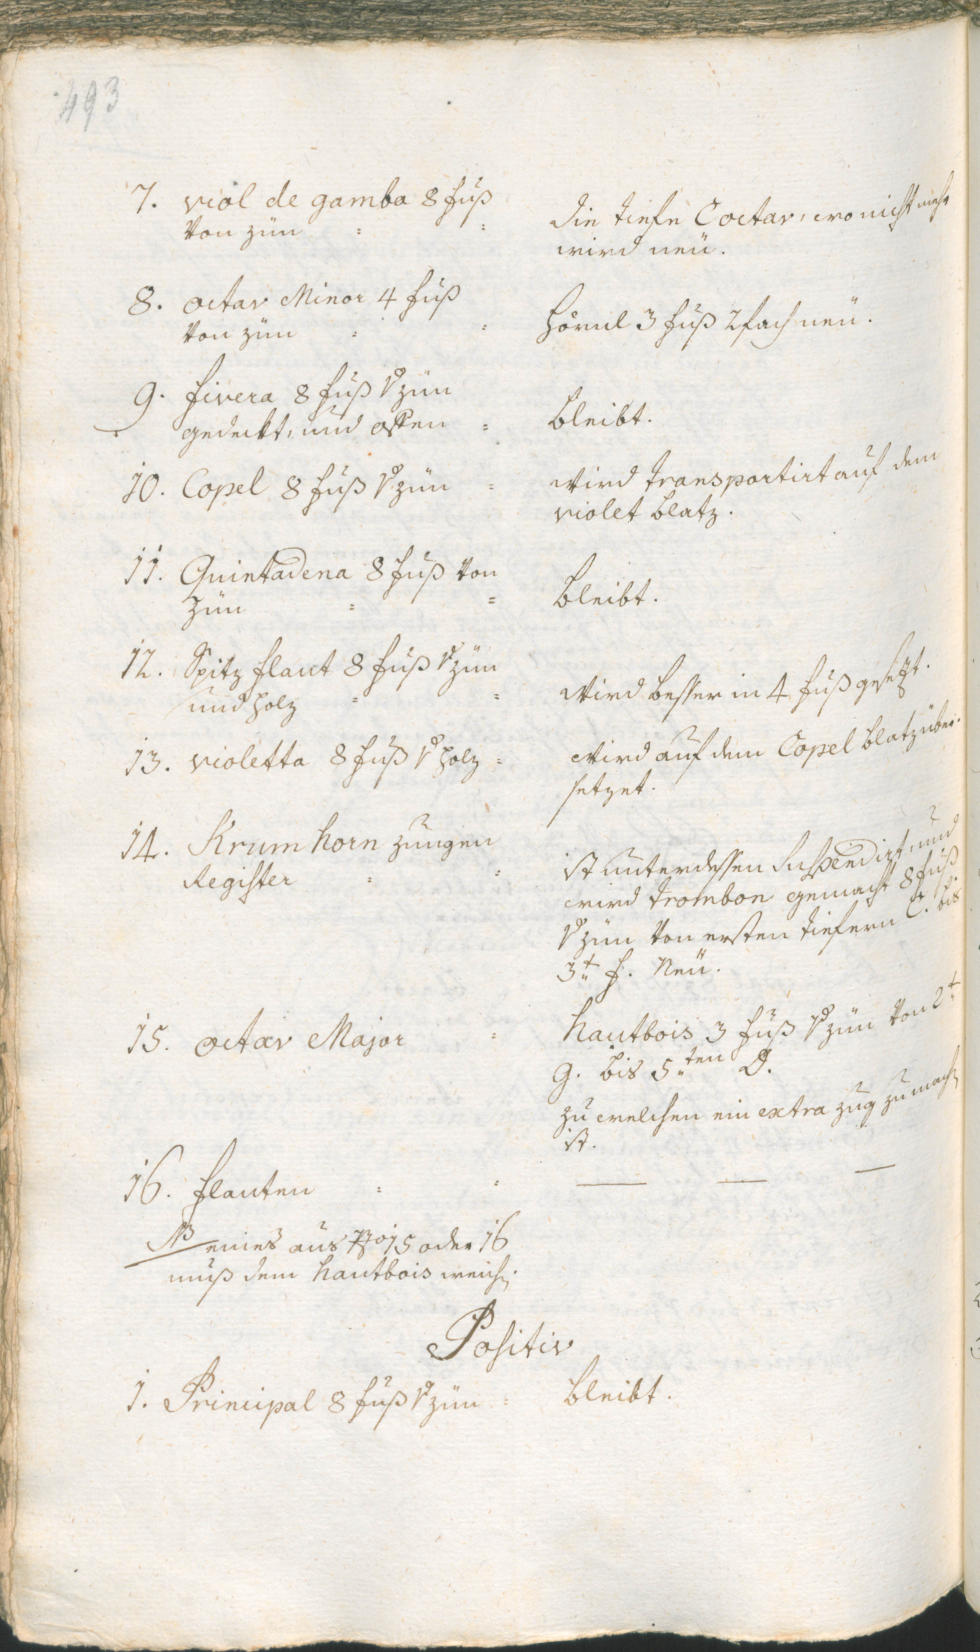 493
7. viol de gamba 8 fuß
von zün = =
die tiefe C octav, wo nicht mehr
wird neü.
8. octav Minor 4 fuß
von zün = =
hörnl 3 fuß 2fach neü.
9. fivera 8 fuß v zün
gedeckt, und offen =
bleibt.
10. Copel 8 fuß v zün =
wird transportirt auf dem
violet blatz.
11. Quintadena 8 fuß von
zün = =
bleibt.
12. Spitz flaut 8 fuß v zün
und holz = =
wird besser in 4 fuß gesetzt.
13. violetta 8 fuß v holz =
wird auf dem Copel blatz über-
setzet.
14. Krumhorn zungen
Register = =
ist unterdessen suspendirt und
wird trombon gemacht 8 fuß
v zün von ersten tiefern C. bis
3t f. Neü.
15. octav Major =
hautbois 3 fuß v zün von 2t
g. bis 5ten D.
zu welchen ein extra zug zu mach
ist.
16. flauten = =
NB eines aus No 15 oder 16
muß dem hautbois weich.
Positiv
1. Principal 8 fuß v zün =
bleibt.